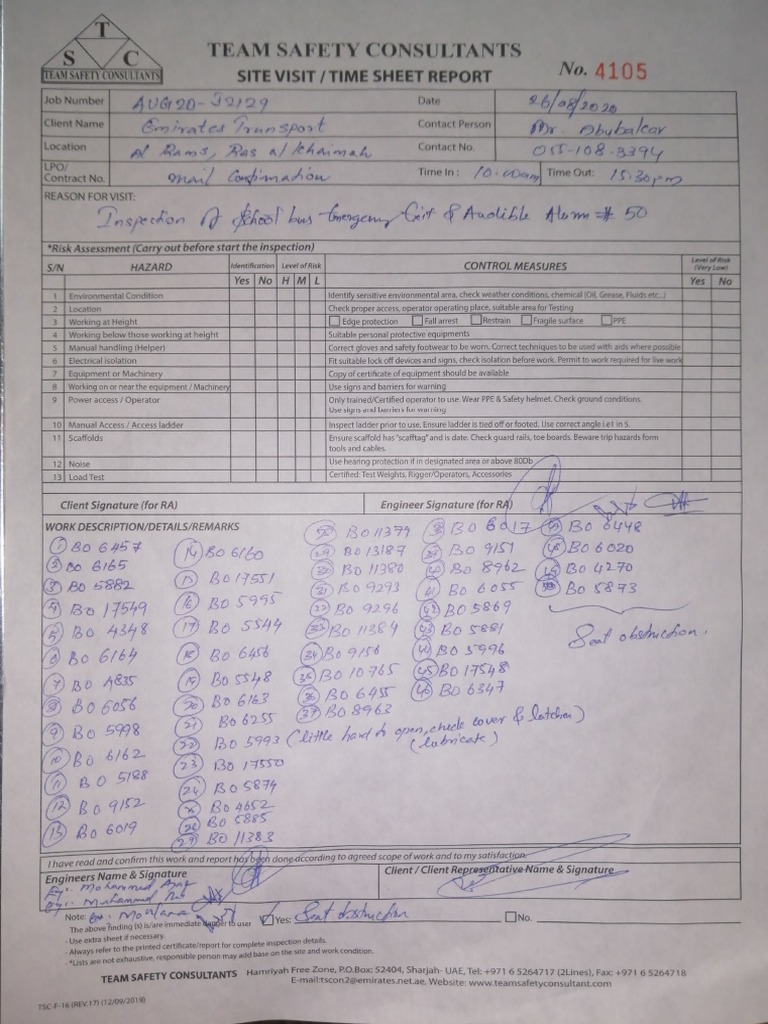 T
S C
TEAM SAFETY CONSULTANTS
TEAM SAFETY CONSULTANTS
SITE VISIT / TIME SHEET REPORT
No. 4105
Job Number AUG20-J2129 Date 26/08/2020
Client Name Emirates Transport Contact Person Mr. Abubakar
Location Al Rams, Ras al Khaimah Contact No. 055-108-3394
LPO/
Contract No. mail Confirmation Time In : 10.00am Time Out: 15:30pm
REASON FOR VISIT:
Inspection of School bus Emergency Exit & Audible Alarm # 50
*Risk Assessment (Carry out before start the inspection)
S/N HAZARD Identification Level of Risk CONTROL MEASURES Level of Risk (Very Low)
Yes No H M L Yes No
1 Environmental Condition Identify sensitive environmental area, check weather conditions, chemical (Oil, Grease, Fluids etc...)
2 Location Check proper access, operator operating place, suitable area for Testing
3 Working at Height Edge protection Fall arrest Restrain Fragile surface PPE
4 Working below those working at height Suitable personal protective equipments
5 Manual handling (Helper) Correct gloves and safety footwear to be worn. Correct techniques to be used with aids where possible
6 Electrical isolation Fit suitable lock off devices and signs, check isolation before work. Permit to work required for live work
7 Equipment or Machinery Copy of certificate of equipment should be available
8 Working on or near the equipment / Machinery Use signs and barriers for warning
9 Power access / Operator Only trained/Certified operator to use. Wear PPE & Safety helmet. Check ground conditions.
Use signs and barriers for warning
10 Manual Access / Access ladder Inspect ladder prior to use. Ensure ladder is tied off or footed. Use correct angle i.e1 in 5.
11 Scaffolds Ensure scaffold has "scafftag" and is date. Check guard rails, toe boards. Beware trip hazards form
tools and cables.
12 Noise Use hearing protection if in designated area or above 80Db
13 Load Test Certified: Test Weights, Rigger/Operators, Accessories
Client Signature (for RA) Engineer Signature (for RA)
WORK DESCRIPTION/DETAILS/REMARKS
1 BO 6457
2 BO 6165
3 BO 5882
4 BO 17549
5 BO 4348
6 BO 6164
7 BO 4835
8 BO 6056
9 BO 5998
10 BO 6162
11 BO 5188
12 BO 9152
13 BO 6019
14 BO 6160
15 BO 17551
16 BO 5995
17 BO 5544
18 BO 6456
19 BO 5548
20 BO 6163
21 BO 6255
22 BO 5993 (little hard to open, check cover & latches)
(lubricate)
23 BO 17550
24 BO 5874
BO 4652
BO 5885
BO 11383
BO 11379
29 BO 13187
BO 11380
BO 9293
BO 9296
33 BO 11384
34 BO 9156
35 BO 10765
36 BO 6455
37 BO 8963
BO 6017
BO 9151
BO 8962
41 BO 6055
42 BO 5869
43 BO 5881
44 BO 5996
45 BO 17548
46 BO 6347
BO 6448
BO 6020
49 BO 4270
50 BO 5873
Seat obstruction.
I have read and confirm this work and report has been done according to agreed scope of work and to my satisfaction.
Engineers Name & Signature Client / Client Representative Name & Signature
Mohammed
Muhammad
Note:
The above finding (s) is/are immediate danger to user Yes: Seat obstruction No.
- Use extra sheet if necessary.
- Always refer to the printed certificate/report for complete inspection details.
- *Lists are not exhaustive, responsible person may add base on the site and work condition.
TEAM SAFETY CONSULTANTS Hamriyah Free Zone, P.O.Box: 52404, Sharjah- UAE, Tel: +971 6 5264717 (2Lines), Fax: +971 6 5264718
E-mail:tscon2@emirates.net.ae, Website: www.teamsafetyconsultant.com
TSC-F-16 (REV.17) (12/09/2019)